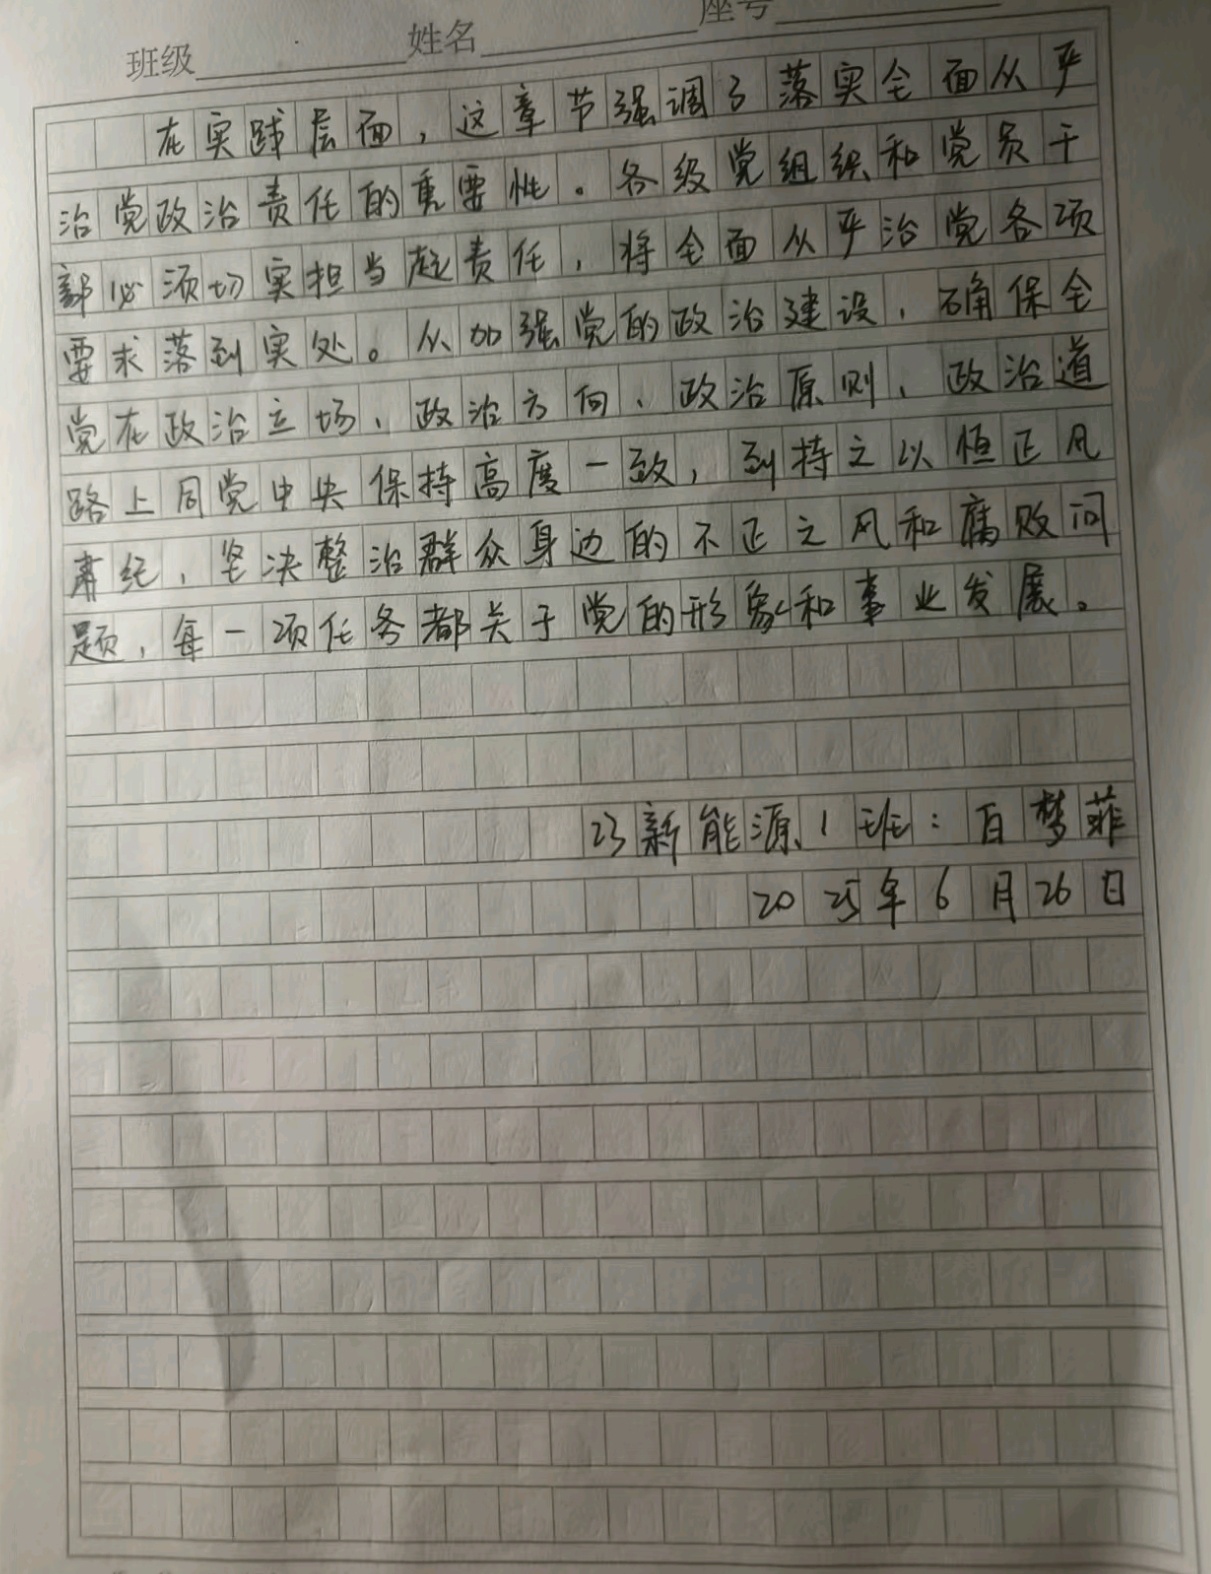 班级 姓名 座号
在实践层面，这章节强调了落实全面从严
治党政治责任的重要性。各级党组织和党员干
部必须切实担当起责任，将全面从严治党各项
要求落到实处。从加强党的政治建设，确保全
党在政治立场、政治方向、政治原则、政治道
路上同党中央保持高度一致，到持之以恒正风
肃纪，坚决整治群众身边的不正之风和腐败问
题，每一项任务都关于党的形象和事业发展。
23新能源1班：白梦菲
2025年6月26日